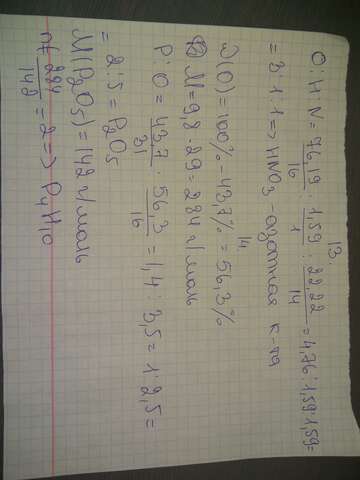 13
O:H:N = 76,19/16 : 1,59/1 : 22,22/14 = 4,76:1,59:1,59=
= 3:1:1 => HNO3 - азотная к-та
14
W(O) = 100% - 43,7% = 56,3%
M = 9,8 · 29 = 284 г/моль
P:O = 43,7/31 : 56,3/16 = 1,4 : 3,5 = 1:2,5 =
= 2:5 = P2O5
M(P2O5) = 142 г/моль
n = 284/142 = 2 => P4H10